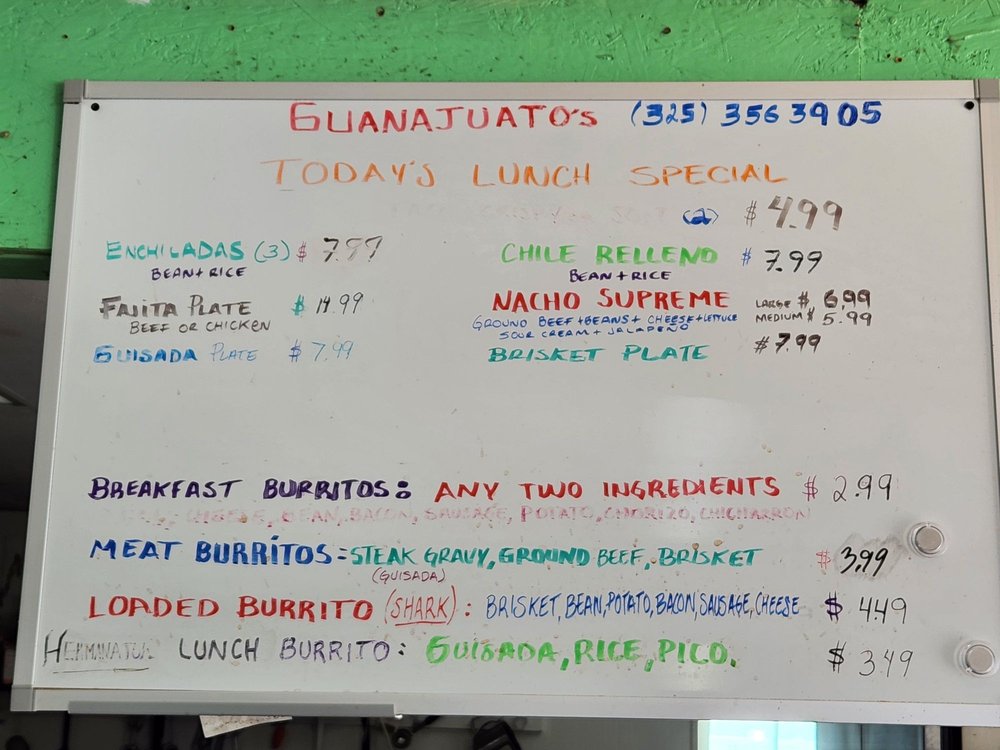 GUANAJUATO'S (325) 356 3905
TODAY'S LUNCH SPECIAL
(2) $ 4.99
ENCHILADAS (3) $ 7.99
BEAN + RICE
FAJITA PLATE $ 14.99
BEEF OR CHICKEN
GUISADA PLATE $ 7.99
CHILE RELLENO $ 7.99
BEAN + RICE
NACHO SUPREME LARGE $ 6.99
MEDIUM $ 5.99
GROUND BEEF + BEANS + CHEESE + LETTUCE
SOUR CREAM + JALAPEÑO
BRISKET PLATE $ 7.99
BREAKFAST BURRITOS: ANY TWO INGREDIENTS $ 2.99
CHEESE, BEAN, BACON, SAUSAGE, POTATO, CHORIZO, CHICHARRON
MEAT BURRITOS = STEAK GRAVY, GROUND BEEF, BRISKET $ 3.99
(GUISADA)
LOADED BURRITO (SHARK): BRISKET, BEAN, POTATO, BACON, SAUSAGE, CHEESE $ 4.49
HERMINATOR LUNCH BURRITO: GUISADA, RICE, PICO. $ 3.49